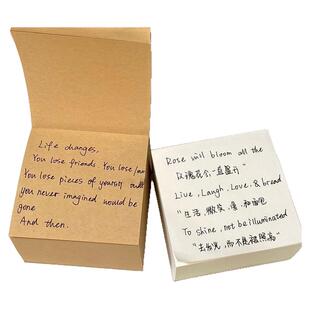 Life changes,
You lose friends You lose
You lose pieces of yourself
you never imagined would be
gone
And then.
Rose will bloom all the
玫瑰花会一直盛开
Live, Laugh, Love, & bread
面包
To shine, not be illuminated
"去发光,而不是被照亮"